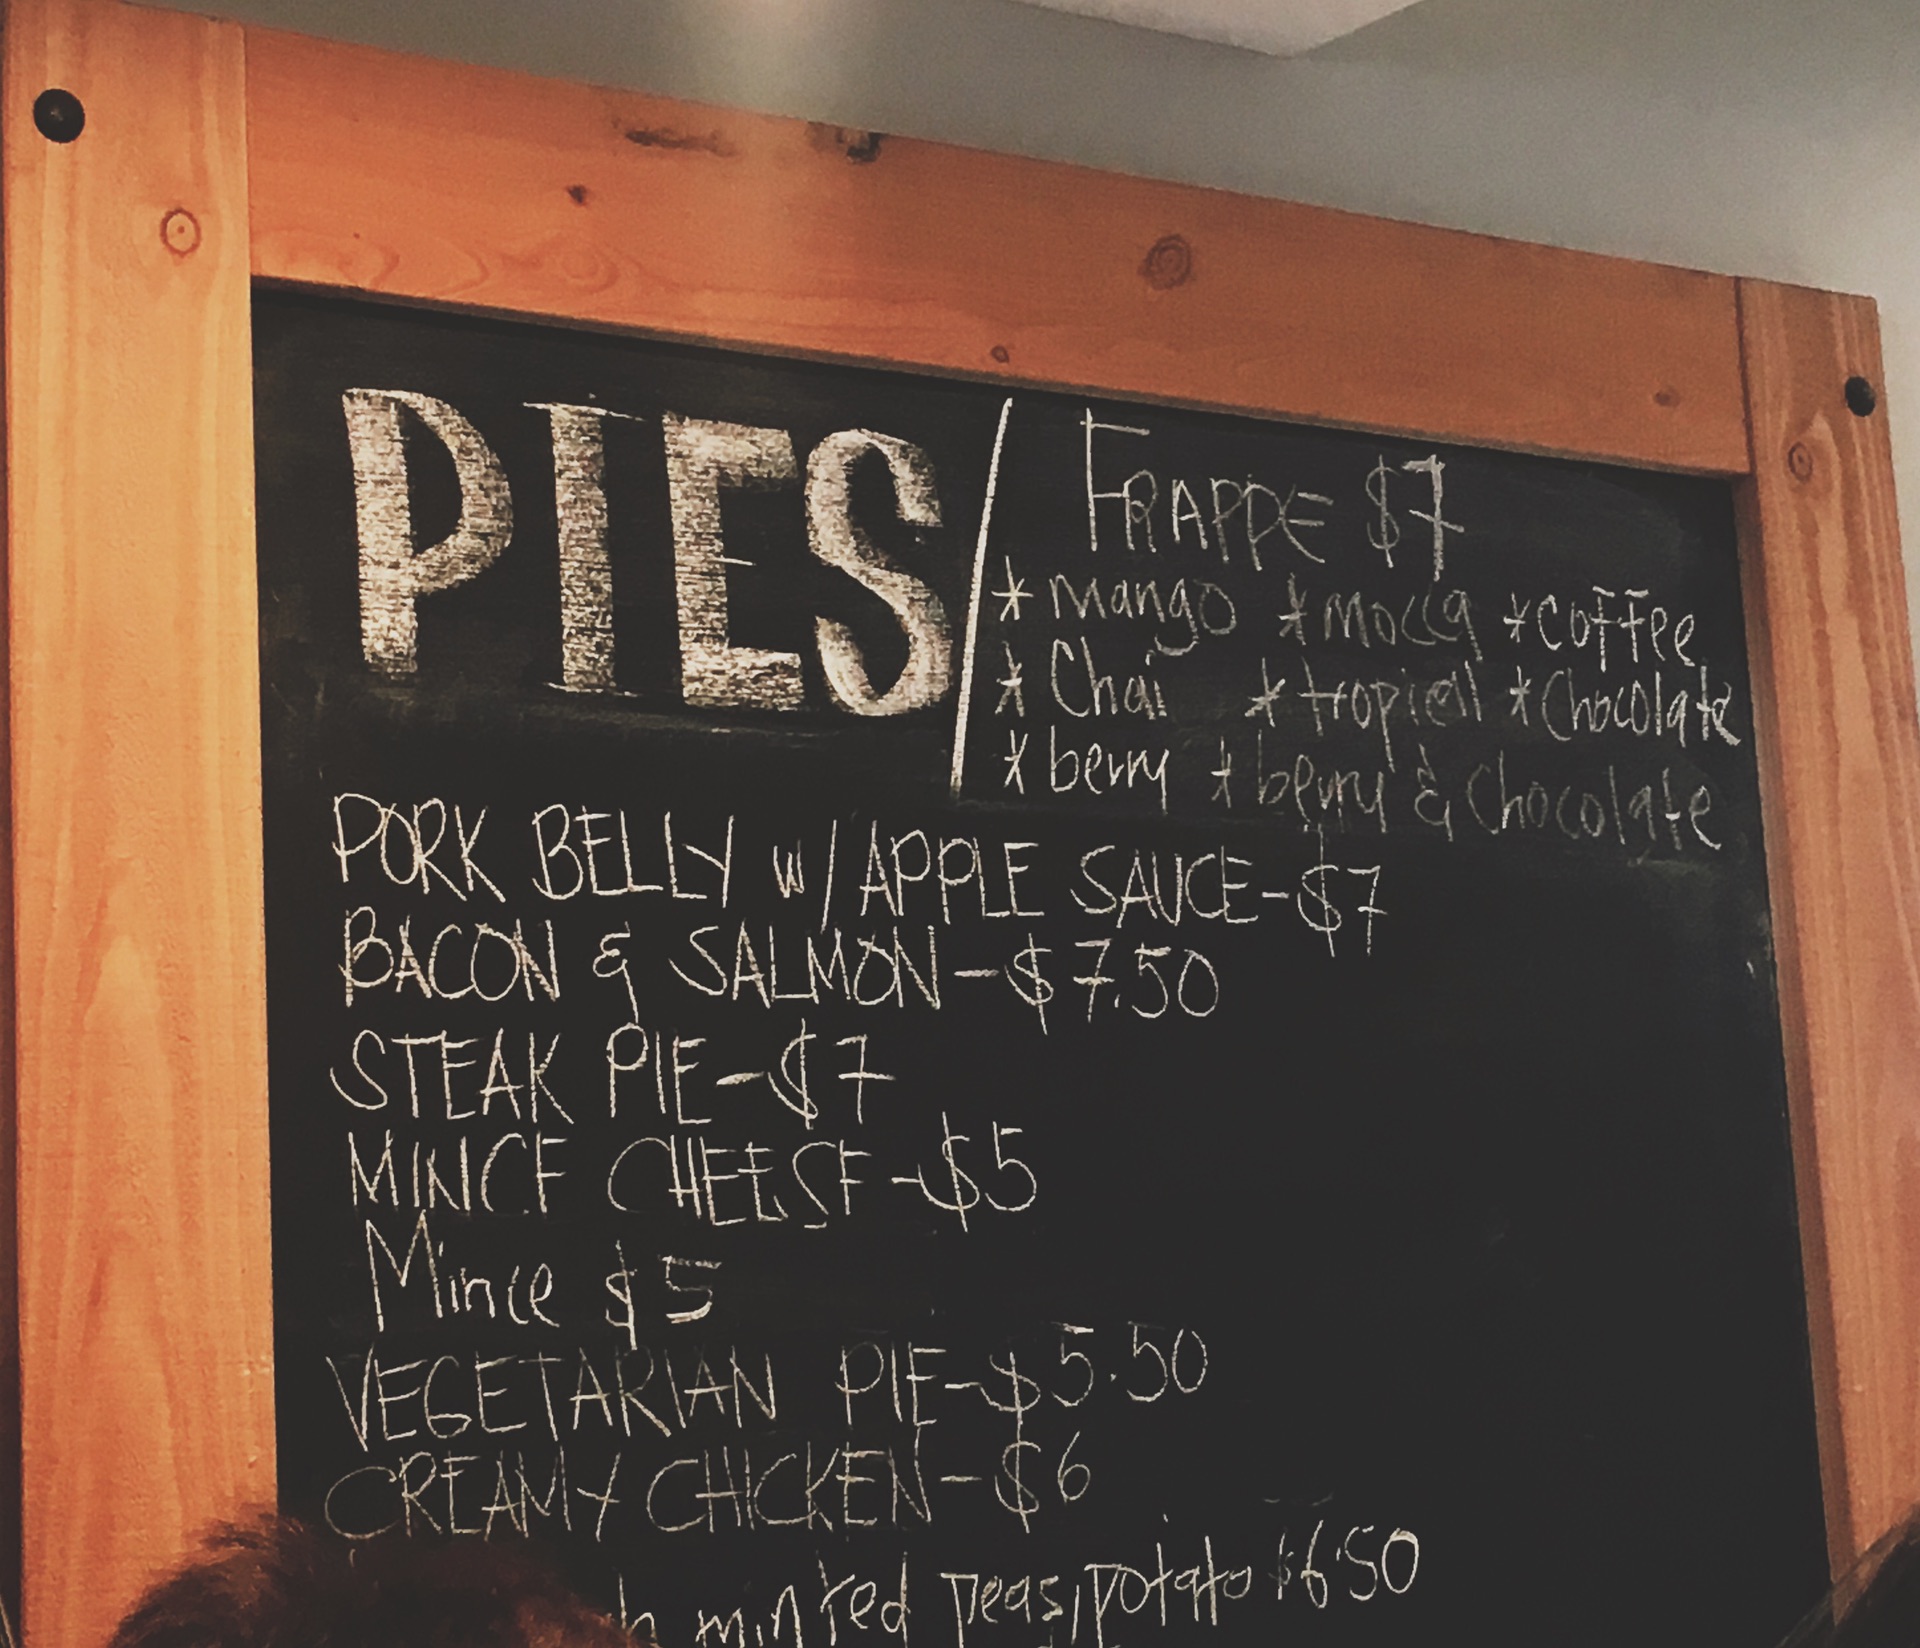 PIES
FRAPPE $7
* mango * mocca * coffee
* Chai * tropical * Chocolate
* berry * berry & Chocolate
PORK BELLY w/ APPLE SAUCE - $7
BACON & SALMON - $7.50
STEAK PIE - $7
MINCE CHEESE - $5
Mince $5
VEGETARIAN PIE - $5.50
CREAMY CHICKEN - $6
minted peas, potato $6.50